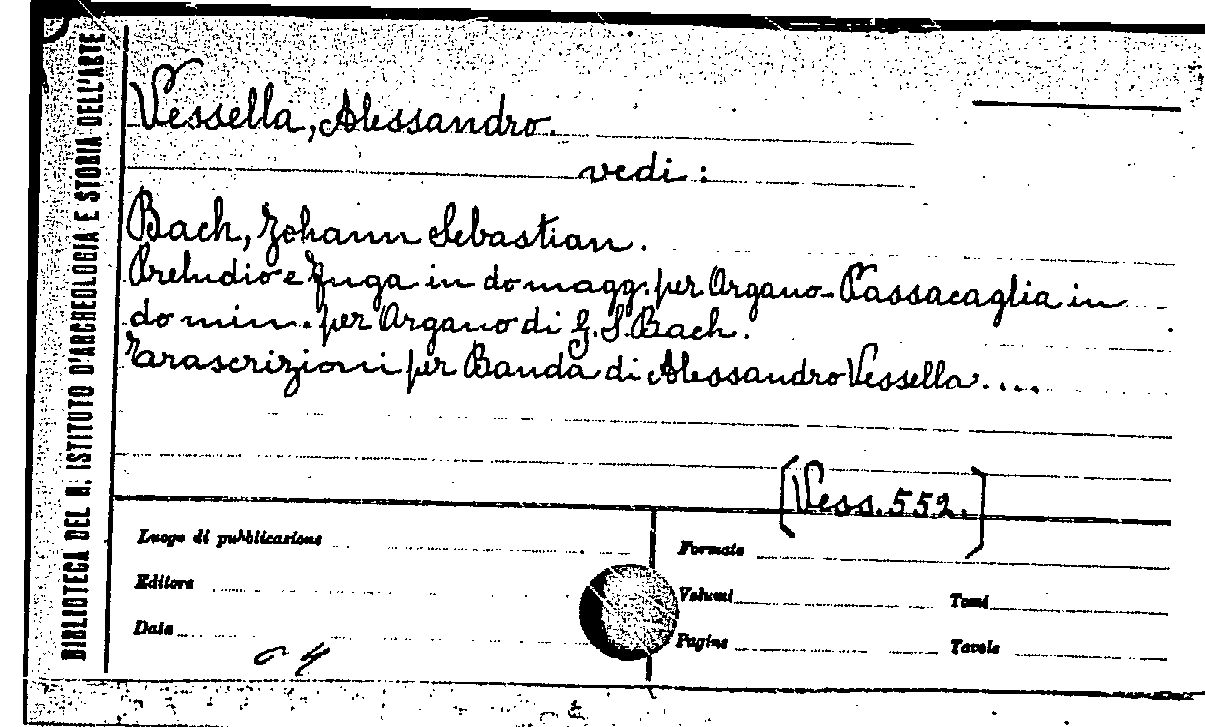 BIBLIOTECA DEL R. ISTITUTO D'ARCHEOLOGIA E STORIA DELL'ARTE
Vessella, Alessandro.
vedi:
Bach, Johann Sebastian.
Preludio e Fuga in do magg. per Organo - Passacaglia in
do min. per Organo di G. S. Bach.
Trascrizioni per Banda di Alessandro Vessella....
[Vess. 552.]
Luogo di pubblicazione
Formato
Editore
Volumi
Tomi
Data
Pagine
Tavole